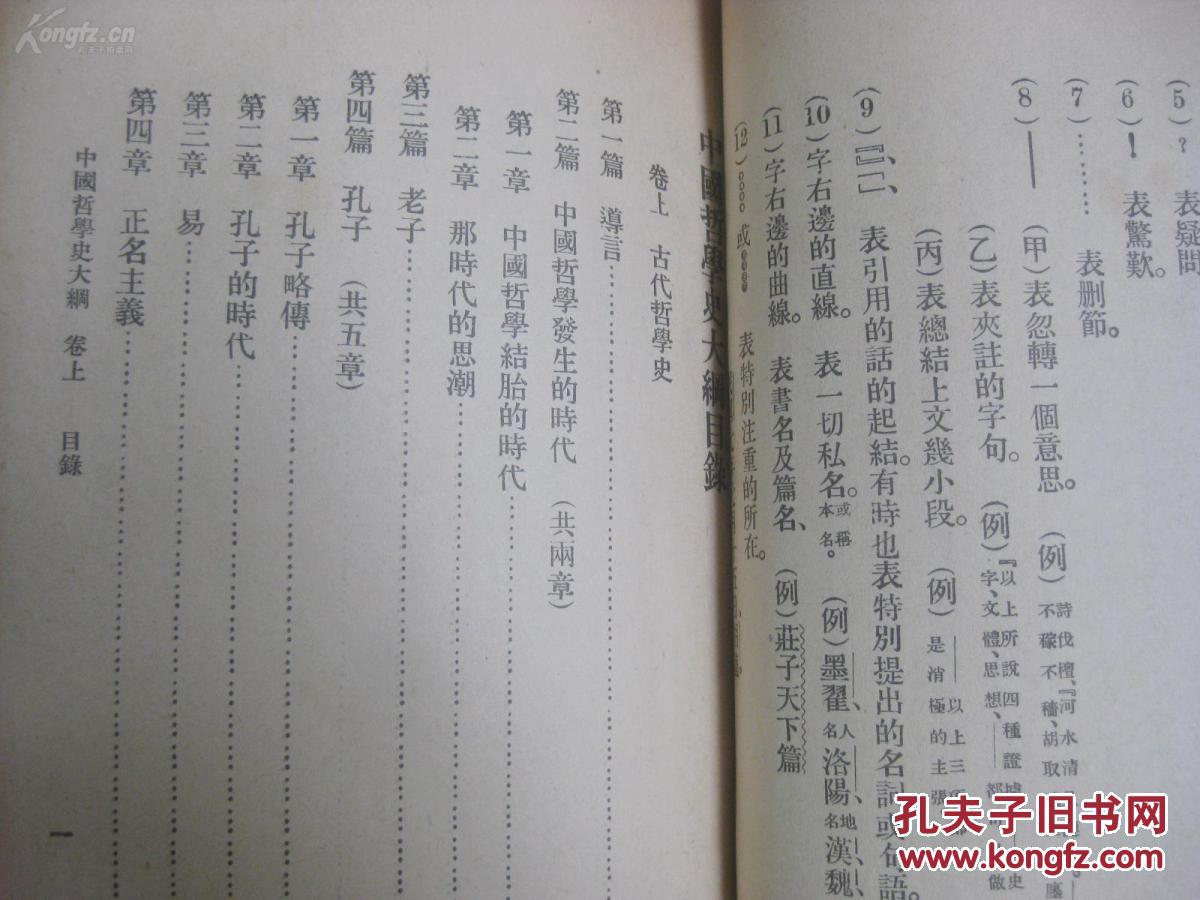 (5)? 表疑問
(6)! 表驚歎。
(7)…… 表刪節。
(8)—— (甲)表忽轉一個意思。 (例) 詩伐檀、『河水清
不稼不穡、胡取
(乙)表夾註的字句。 (例) 『以上所說四種證據 史
字、文體、思想、 做
(丙)表總結上文幾小段。 (例) ——以上三項
是消極的主張
(9)『』、「」、 表引用的話的起結。有時也表特別提出的名詞或句語。
(10)字右邊的直線。 表一切私名。或稱本名。 (例)墨翟、人名洛陽、地名漢魏、
(11)字右邊的曲線。 表書名及篇名、 (例)莊子天下篇
(12)。。。。或 表特別注重的所在。
中國哲學史大綱目錄
卷上 古代哲學史
第一篇 導言……
第二篇 中國哲學發生的時代 (共兩章)
第一章 中國哲學結胎的時代……
第二章 那時代的思潮……
第三篇 老子……
第四篇 孔子 (共五章)
第一章 孔子略傳……
第二章 孔子的時代……
第三章 易……
第四章 正名主義……
中國哲學史大綱 卷上 目錄
一
Kongfz.cn
孔夫子拍賣网
孔夫子旧书网
www.kongfz.com